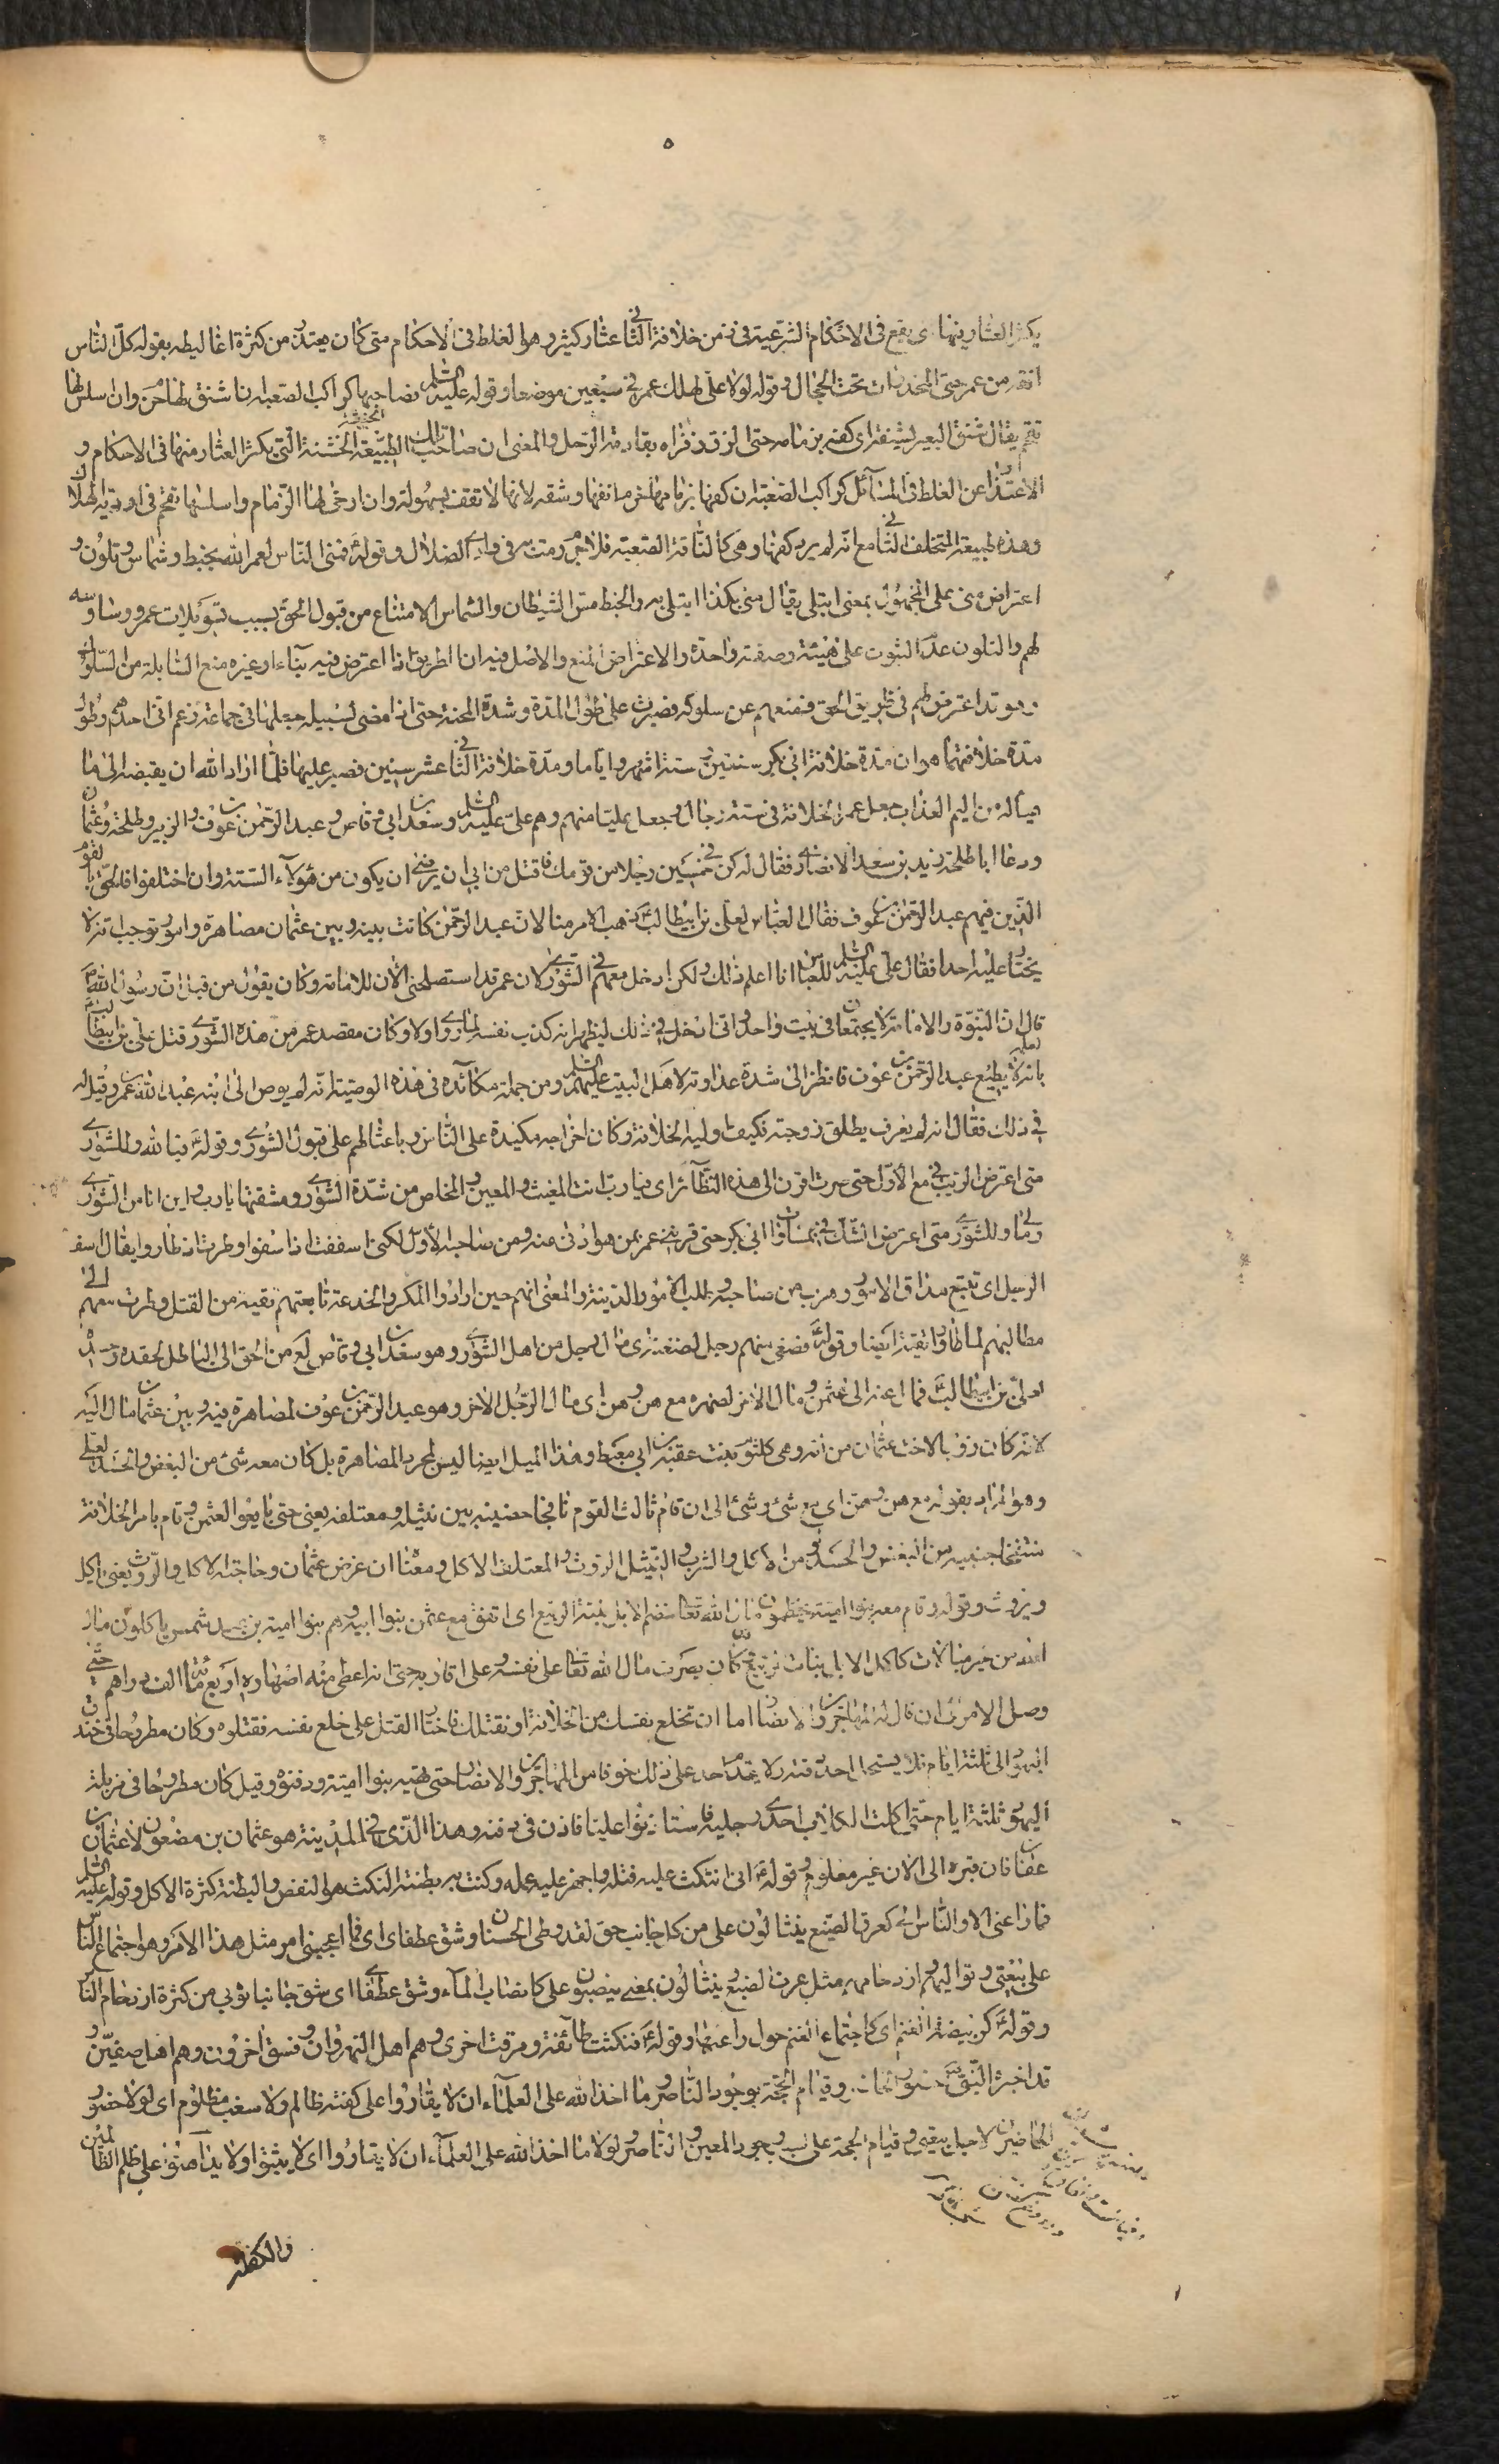 ٥
يكثر العثار منها اى يقع فى الاحكام الشرعية فى زمن خلافة الثانى عثار كثير وهو الغلط فى الاحكام حتى كان يعتذر من كثرة اغاليطه بقوله كل الناس
افقه من عمر حتى المخدرات تحت الحجال وقوله لولا على لهلك عمر فى سبعين موضعا وقوله عليه السلم فصاحبها كراكب الصعبة ان اشنق لها خرم وان اسلس لها
تقحم يقال شنق البعير يشنقه اى كفه بزمامه حتى الزق ذفراه بقادمة الرحل والمعنى ان صاحب تلك الطبيعة الخشنة التى يكثر العثار منها فى الاحكام و
الاعتذار عن الغلط فى المسائل كراكب الصعبة ان كفها بزمامها خرم انفها وشقه لانها لا تقف بسهولة وان ارخى لها الزمام واسلسها تقحم فى اودية الهلاك
وهذه طبيعة المتخلف الثانى مع انه لم يرد كفها وهى كالناقة الصعبة فلا جرم رمت به فى وادى الضلال وقوله فمنى الناس لعمر الله بخبط وشماس وتلون و
اعتراض منى على المجهول بمعنى ابتلى يقال منى بكذا ابتلى به والخبط مس الشيطان والشماس الامتناع من قبول الحق بسبب تسويلات عمر ووساوسه
لهم والتلون عدم الثبوت على هيئة وصفة واحدة والاعتراض المنع والاصل فيه ان الطريق اذا اعترض فيه بناء او غيره منع السابلة من السلوك
وهو قد اعترض لهم فى طريق الحق فمنعهم عن سلوكه فصبرت على طول المدة وشدة المحنة حتى اذا مضى لسبيله جعلها فى جماعة زعم انى احدهم وطول
مدة خلافتهما هو ان مدة خلافة ابى بكر سنتين وستة اشهر واياما ومدة خلافة الثانى عشر سنين فصبر عليها فلما اراد الله ان يقبضه الى ما
هيأ له من اليم العذاب جعل عمر الخلافة فى ستة رجال وجعل عليا منهم وهم على عليه السلم وسعد بن ابى وقاص وعبد الرحمن بن عوف والزبير وطلحة وعثمان
ودعا ابا طلحة زيد بن سعد الانصارى فقال له كن فى خمسين رجلا من قومك فاقتل من ابى ان يرضى ان يكون من هؤلاء الستة وان اختلفوا فالحق بالقوم
الذين فيهم عبد الرحمن بن عوف فقال العباس لعلى بن ابيطالب ذهب الامر منا لان عبد الرحمن كانت بينه وبين عثمان مصاهرة وامور توجب انه لا
يختار عليه احدا فقال على عليه السلم للعباس انا اعلم ذلك ولكن ادخل معهم فى الشورى لان عمر قد استصلحنى الان للامامة وكان يقول من قبل ان رسول الله ص
قال ان النبوة والامامة لا يجتمعان فى بيت واحد وانى ادخل فى ذلك ليظهر انه كذب نفسه لما روى اولا وكان مقصد عمر من هذه الشورى قتل على بن ابيطالب
لعلمه بانه لا يطيع عبد الرحمن بن عوف فانظر الى شدة عداوته لاهل البيت عليهم السلم ومن جملة مكائده فى هذه الوصية انه لم يوص الى ابنه عبد الله بن عمر وقيل له
فى ذلك فقال انه لم يعرف يطلق زوجته فكيف اوليه الخلافة وكان اخراجه مكيدة على الناس وباعثا لهم على قبول الشورى وقوله فيا لله وللشورى
متى اعترض الريب فى مع الاول حتى صرت اقرن الى هذه النظائر اى فيا رب انت المغيث والمعين والمخلص من شدة الشورى ومشقتها يا رب واين انا من الشورى
وما لى وللشورى متى اعترض الشك فى بمساواة ابى بكر حتى قرننى عمر بمن هو ادنى منه ومن صاحبه الاول لكنى اسففت اذا سفوا وطرت اذ طاروا يقال اسف
الرجل اى تتبع مداق الامور وهرب من صاحبه وطلب الامور الدنية والمعنى انهم حين ارادوا المكر والخدعة تابعتهم تقية من القتل وطرت معهم الى
مطالبهم لما طاروا تقية ايضا وقوله فصغى منهم رجل لضغنه اى مال رجل من اهل الشورى وهو سعد بن ابى وقاص لع من الحق الى الباطل لحقده وحسده
لعلى بن ابيطالب فمال عنه الى عثمن ومال الاخر لصهره مع هن وهن اى مال الرجل الاخر وهو عبد الرحمن بن عوف لمصاهرة فيه وبين عثمان مال اليه
لانه كان زوجا لاخت عثمان من امه وهى كلثوم بنت عقبة بن ابى معيط وهذا الميل ايضا ليس لمجرد المصاهرة بل كان معه شئ من البغض والحسد لعلى
وهو المراد بقوله مع هن وهن اى مع شئ وشئ الى ان قام ثالث القوم نافجا حضنيه بين نثيله ومعتلفه يعنى حتى بايعوا لعثمن وقام بامر الخلافة
منتفخا جنبيه من البغض والحسد او من الاكل والشرب والنثيل الروث والمعتلف الاكل ومعناه ان غرض عثمان وحاجته الاكل والروث يعنى ياكل
ويروث وقوله وقام معه بنوا امية يخضمون مال الله تعا خضم الابل نبتة الربيع اى اتفق مع عثمن بنوا ابيه وهم بنوا امية بن عبد شمس ياكلون مال
الله من غير مبالات كاكل الابل نبات الربيع كان يصرف مال الله تعا على نفسه وعلى اقاربه حتى انه اعطى منه اصهاره اربع مائة الف دراهم حتى
وصل الامر الى ان قال له المهاجرين والانصار اما ان تخلع نفسك من الخلافة او نقتلك فاختار القتل على خلع نفسه فقتلوه وكان مطروحا فى خندق
اليهود الى ثلثة ايام فلا يستحل احد دفنه ولا يقدم احد على ذلك خوفا من المهاجرين والانصار حتى نهبه بنوا امية ودفنوه وقيل كان مطروحا فى مزبلة
اليهود ثلثة ايام حتى اكلت الكلاب احدى رجليه فاستاذنوا عليا فاذن فى دفنه وهذا الذى فى المدينة هو عثمان بن مضعون لا عثمان بن
عفان فان قبره الى الان غير معلوم وقوله الى ان انتكث عليه فتله واجهز عليه عمله وكبت به بطنته النكث هو النقض والبطنة كثرة الاكل وقوله عليه السلم
فما راعنى الا والناس الى كعرف الضبع ينثالون على من كل جانب حتى لقد وطى الحسنان وشق عطفاى اى فما اعجبنى امر مثل هذا الامر وهو اجتماع الناس
على بيعتى وتواليهم وازدحامهم مثل عرف الضبع ينثالون بمعنى ينصبون على كانصباب الماء وشق عطفاى اى شق جانبا ثوبى من كثرة ازدحام الناس
وقوله كربيضة الغنم اى كاجتماع الغنم حول راعيها وقوله فنكثت طائفة ومرقت اخرى وهم اهل النهروان وفسق اخرون وهم اهل صفين و
قد اخبر النبى ص حضور الحاضر وقيام الحجة بوجود الناصر وما اخذ الله على العلماء ان لا يقاروا على كظة ظالم ولا سغب مظلوم اى لولا حضور
الحاضرين لاجل بيعتى وقيام الحجة على بوجود المعين والناصر ولولا ما اخذ الله على العلماء ان لا يقاروا اى لا يثبتوا ولا يداهنوا على ظلم الظالمين
والكظة